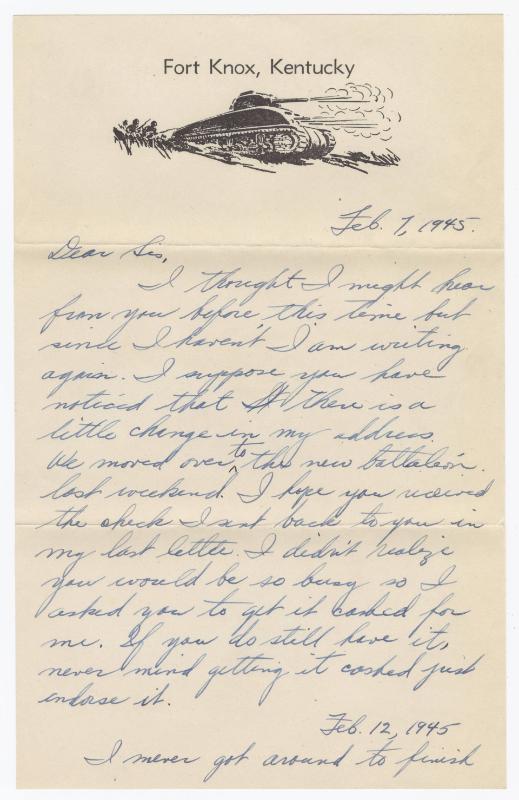 Fort Knox, Kentucky
Feb. 7, 1945.
Dear Sis,
I thought I might hear
from you before this time but
since I haven't I am writing
again. I suppose you have
noticed that there is a
little change in my address.
We moved over to this new battalion
last weekend. I hope you received
the check I sent back to you in
my last letter. I didn't realize
you would be so busy so I
asked you to get it cashed for
me. If you do still have it,
never mind getting it cashed just
endorse it.
Feb. 12, 1945
I never got around to finish